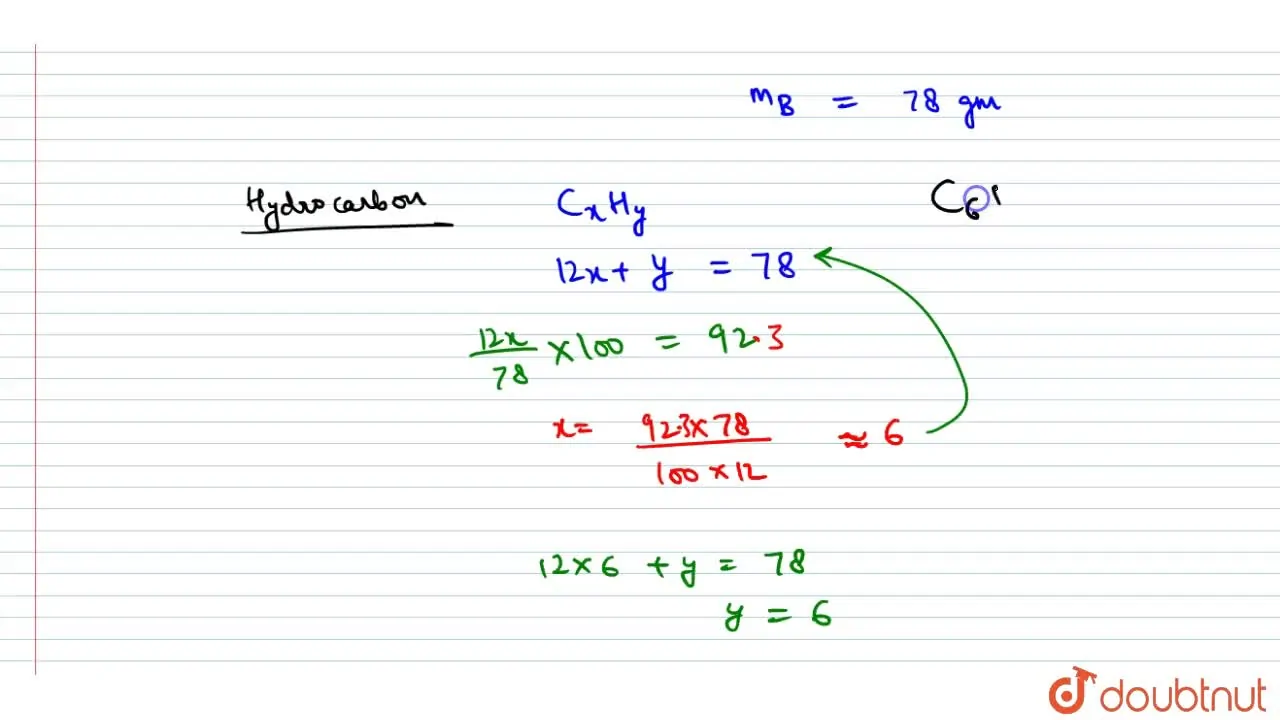 mB = 78 gm
Hydrocarbon CxHy C6
12x + y = 78
12x/78 × 100 = 92.3
x = 92.3×78/100×12 ≈ 6
12×6 + y = 78
y = 6
doubtnut